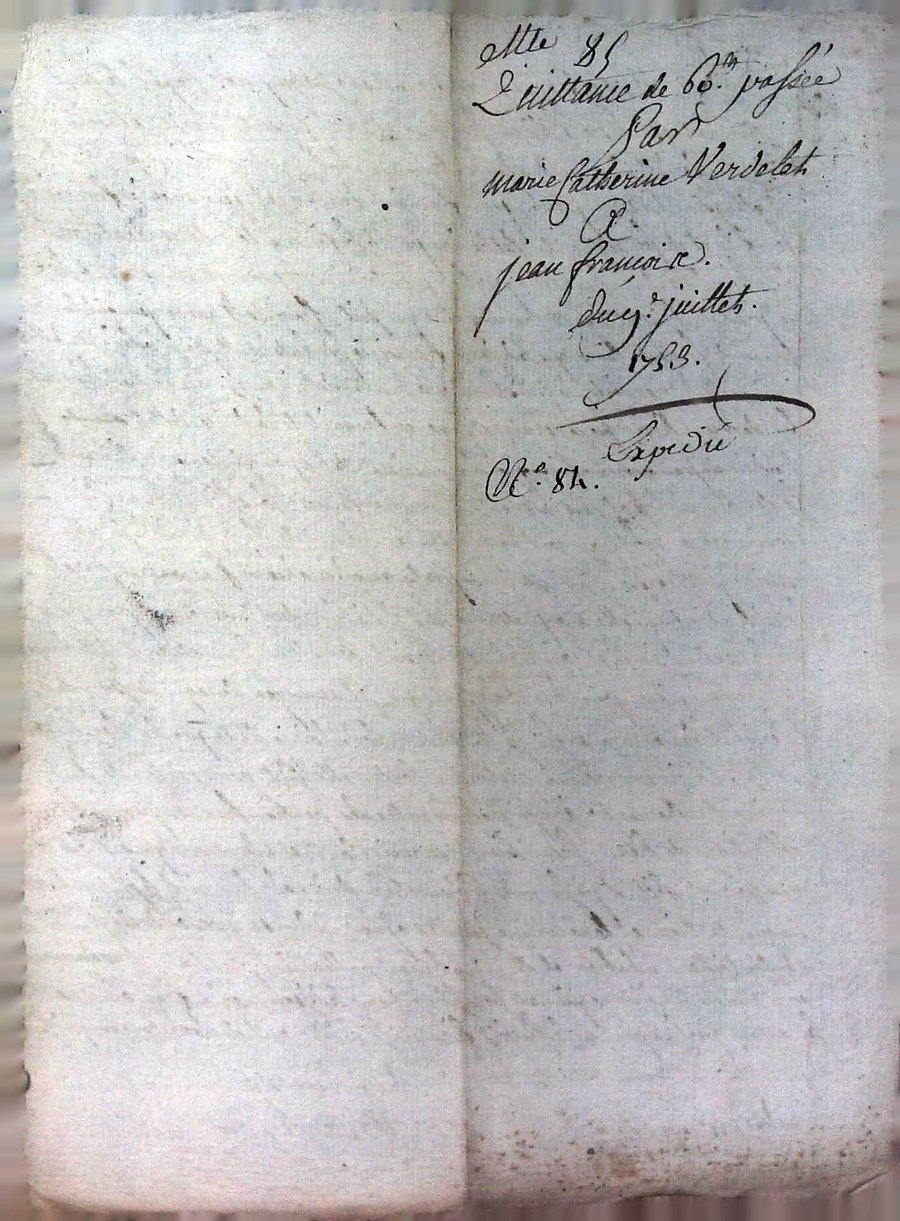 Mte 85
Quittance de 60.tt passée
Par
marie Catherine Verdelet
A
jean françoise.
du 9.e juillet.
1753.
Expedié
N.o 84.